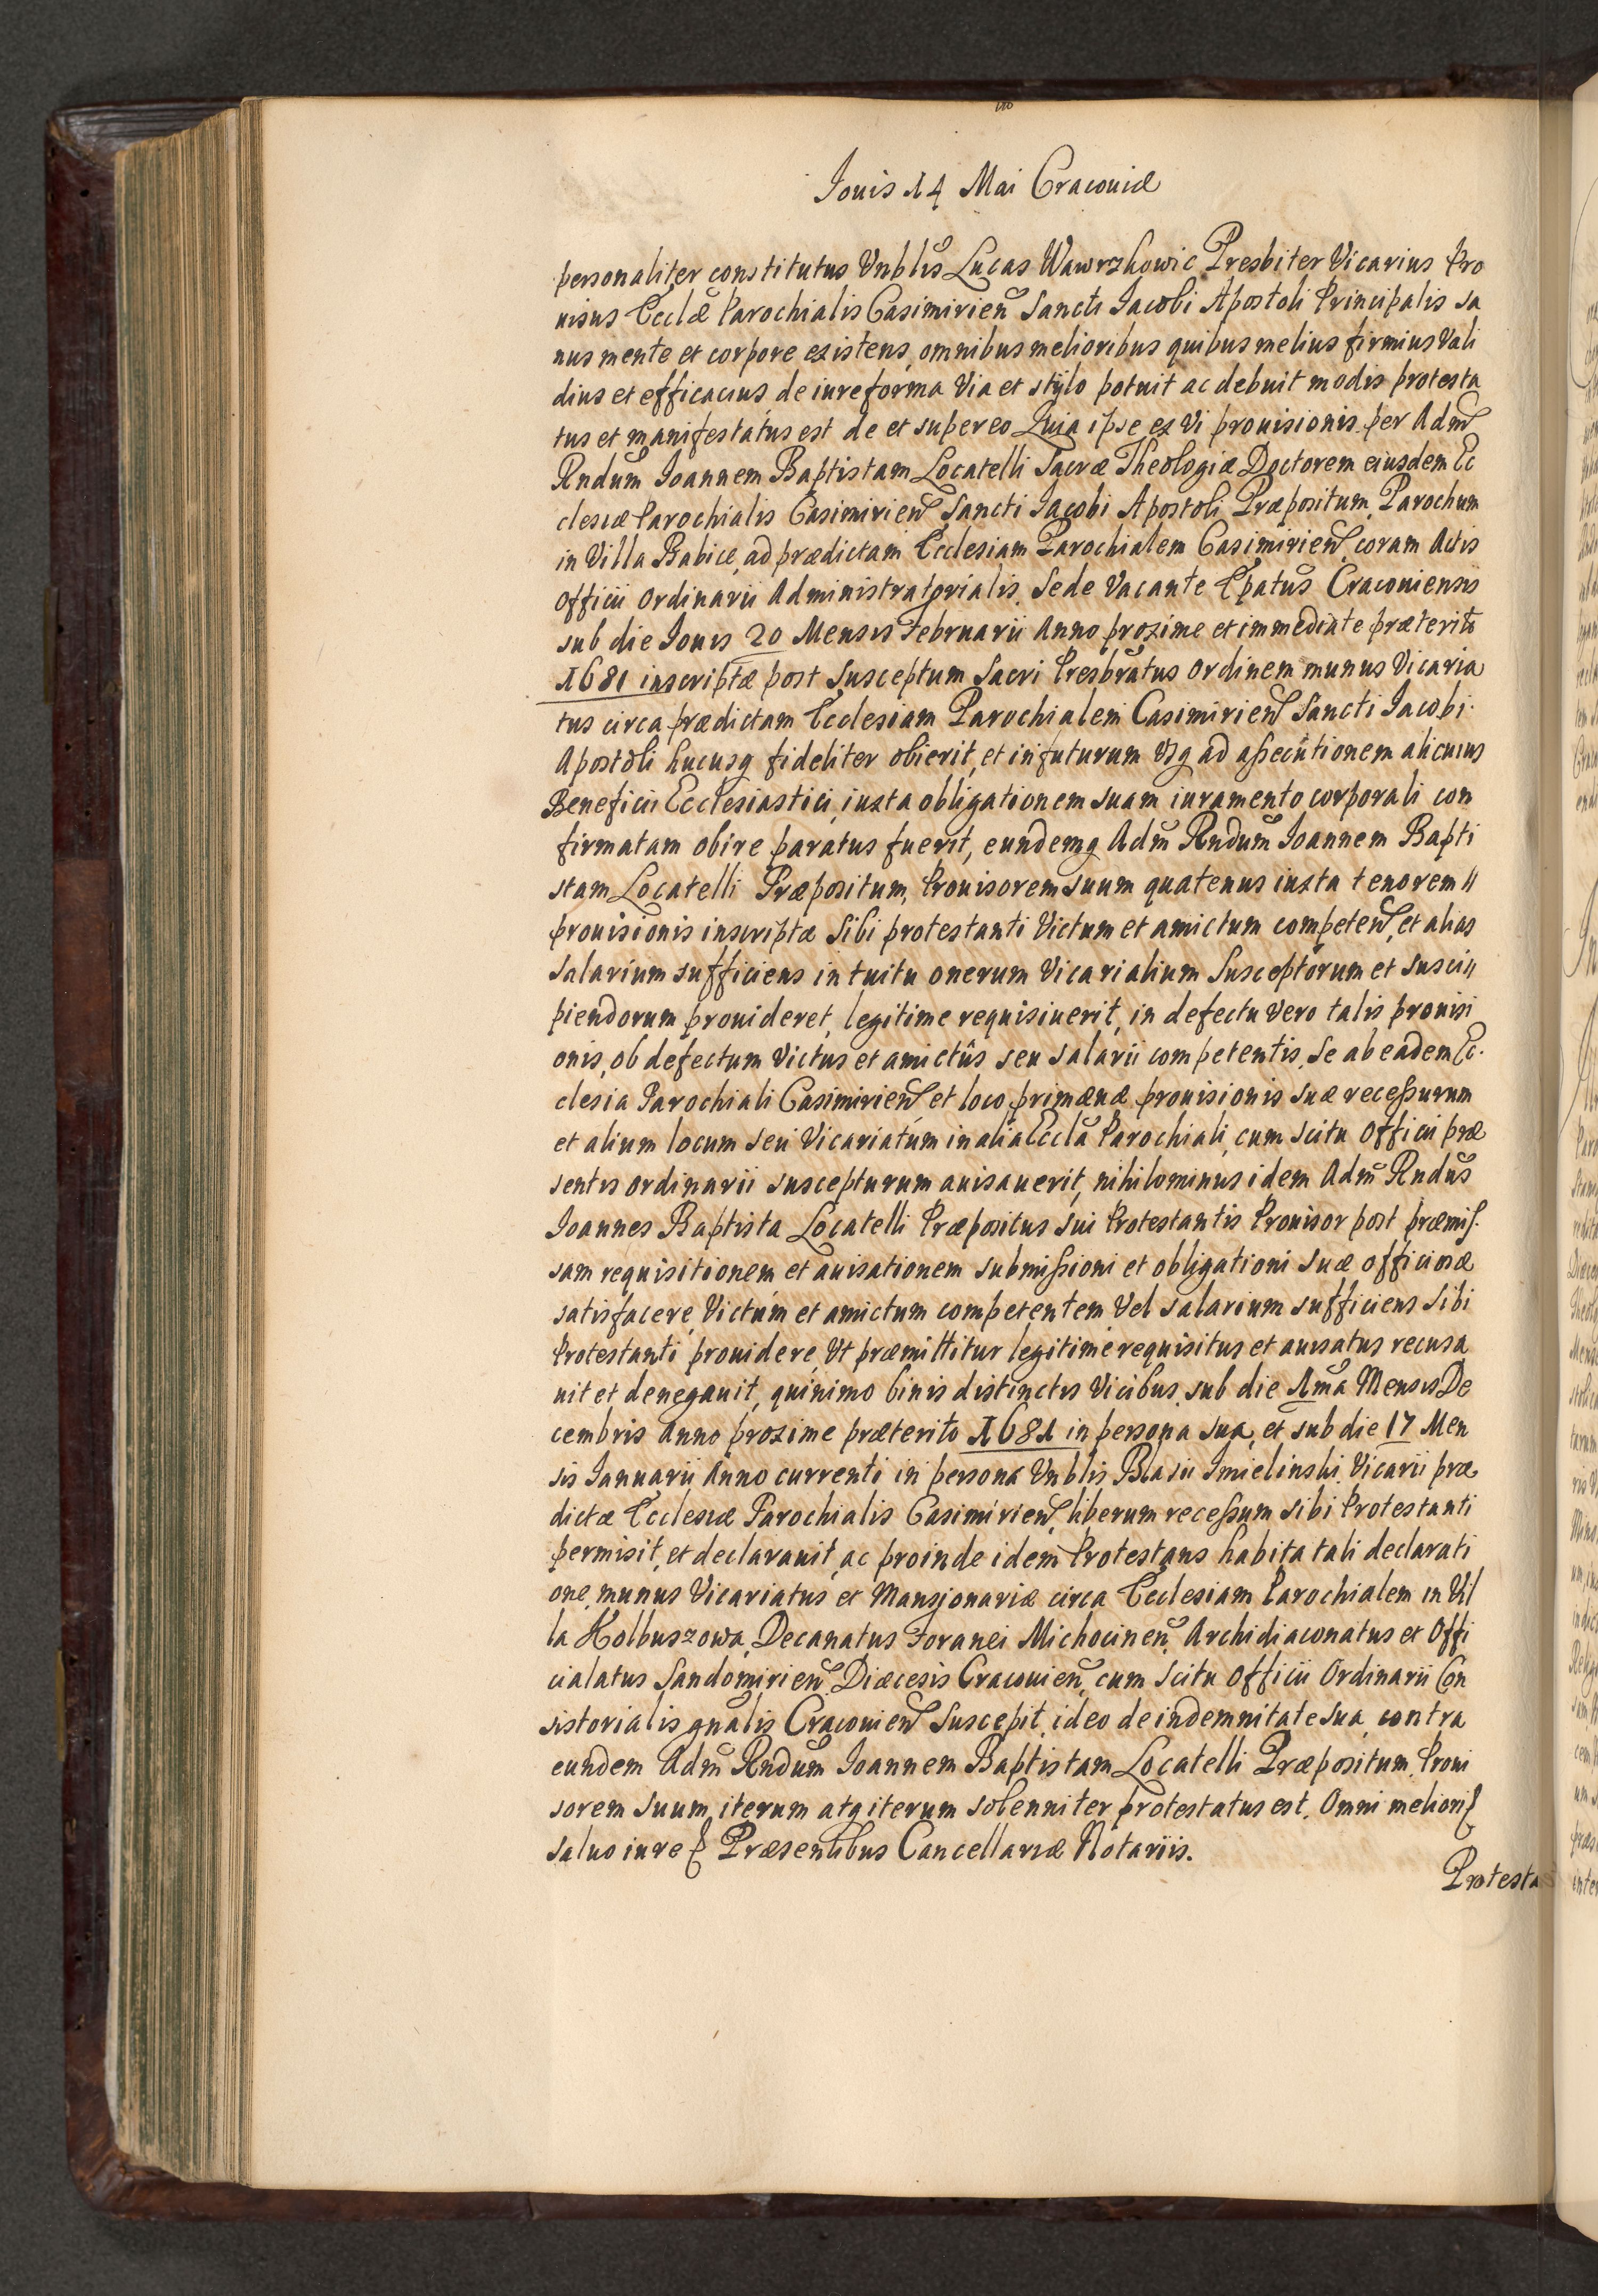 Iouis 14 Mai Cracouiæ
personaliter constitutus Vnblis Lucas Wawrzkowic Presbiter Vicarius Pro
uisus Ecclæ Parochialis Casimirien Sancti Iacobi Apostoli Principalis sa
nus mente et corpore existens, omnibus melioribus quibus melius firmius Vali
dius et efficacius de iure forma Via et stylo potuit ac debuit modis protesta
tus et manifestatus est de et super eo Quia ipse ex Vi prouisionis per Adm
Rndum Ioannem Baptistam Locatelli Sacræ Theologiæ Doctorem eiusdem Ec
clesiæ Parochialis Casimirien Sancti Iacobi Apostoli Præpositum, Parochum
in Villa Babice, ad prædictam Ecclesiam Parochialem Casimirien, coram Actis
Officii Ordinarii Administratorialis, Sede Vacante Epatus Cracouiensis
sub die Iouis 20 Mensis Februarii Anno proxime et immediate præterito
1681 inscriptæ post susceptum Sacri Presbratus Ordinem munus Vicaria
tus circa prædictam Ecclesiam Parochialem Casimirien Sancti Iacobi
Apostoli hucusq fideliter obierit, et in futurum Vsq ad assecutionem alicuius
Beneficii Ecclesiastici, iuxta obligationem suam iuramento corporali con
firmatam obire paratus fuerit, eundemq Adm Rndum Ioannem Bapti
stam Locatelli Præpositum, Prouisorem suum quatenus iuxta tenorem //
prouisionis inscriptæ Sibi protestanti Victum et amictum competen, et alias
salarium sufficiens intuitu onerum Vicarialium Susceptorum et susci //
piendorum prouideret, legitime requisiuerit, in defectu Vero talis prouisi
onis, ob defectum Victus et amictûs seu salarii competentis, se ab eadem Ec.
clesia Parochiali Casimirien, et loco primæuæ prouisionis suæ recessurum
et alium locum seu Vicariatum in alia Eccla Parochiali, cum scitu Officii præ
sentis Ordinarii suscepturum auisauerit, nihilominus idem Adm Rndus
Ioannes Baptista Locatelli Præpositus sui Protestantis Prouisor post præmis.
sam requisitionem et auisationem submissioni et obligationi suæ officiosæ
satisfacere, Victum et amictum competentem Vel salarium sufficiens sibi
Protestanti prouidere, Vt præmittitur legitime requisitus et auisatus recusa
uit et denegauit, quinimo binis distinctis Vicibus, sub die 1ma Mensis De
cembris Anno proxime præterito 1681 in persona sua, et sub die 17 Men
sis Ianuarii Anno currenti in persona Vnblis Blasii Imielinski Vicarii præ
dictæ Ecclesiæ Parochialis Casimirien, liberum recessum sibi Protestanti
permisit, et declarauit, ac proinde idem Protestans habita tali declarati
one, munus Vicariatus et Mansjonariæ circa Ecclesiam Parochialem in Vil
la Kolbuszowa, Decanatus Foranei Michocinen, Archidiaconatus et Offi
cialatus Sandomirien Diæcesis Cracouien, cum scitu Officii Ordinarii Con
sistorialis gnalis Cracouien Suscepit, ideo de indemnitate sua, contra
eundem Adm Rndum Ioannem Baptistam Locatelli Præpositum, Proui
sorem suum, iterum atq iterum solenniter protestatus est. Omni meliori
saluo iure Præsentibus Cancellariæ Notariis.
Protesta